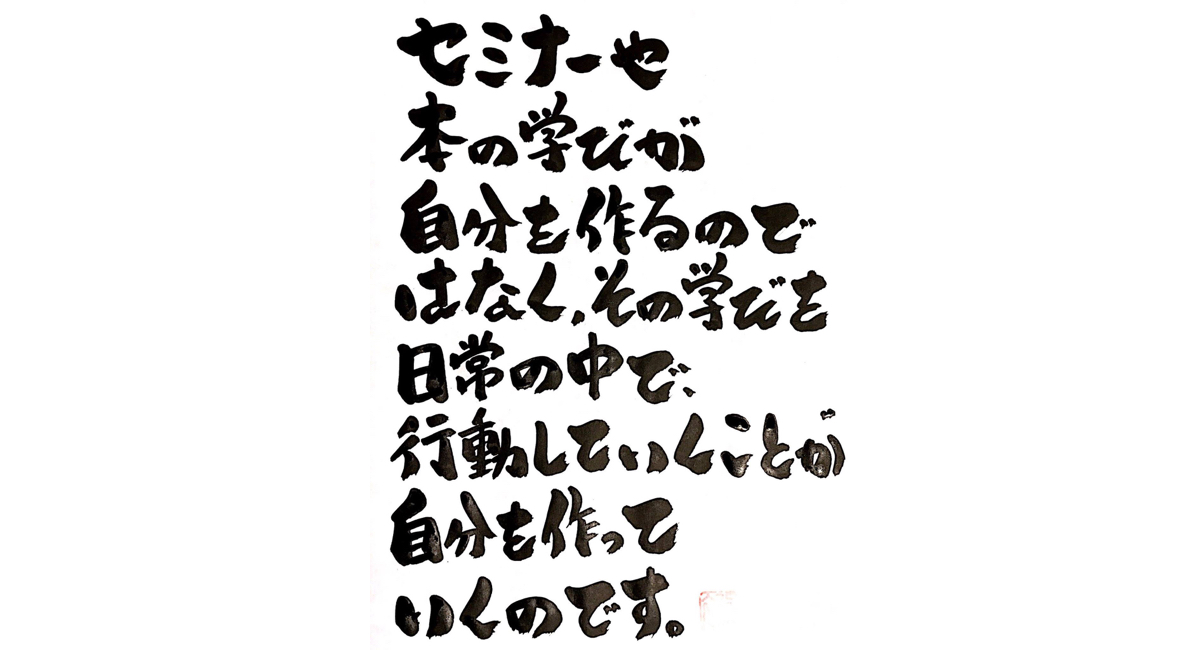 セミナーや
本の学びが
自分を作るので
はなく、その学びを
日常の中で、
行動していくことが
自分を作って
いくのです。